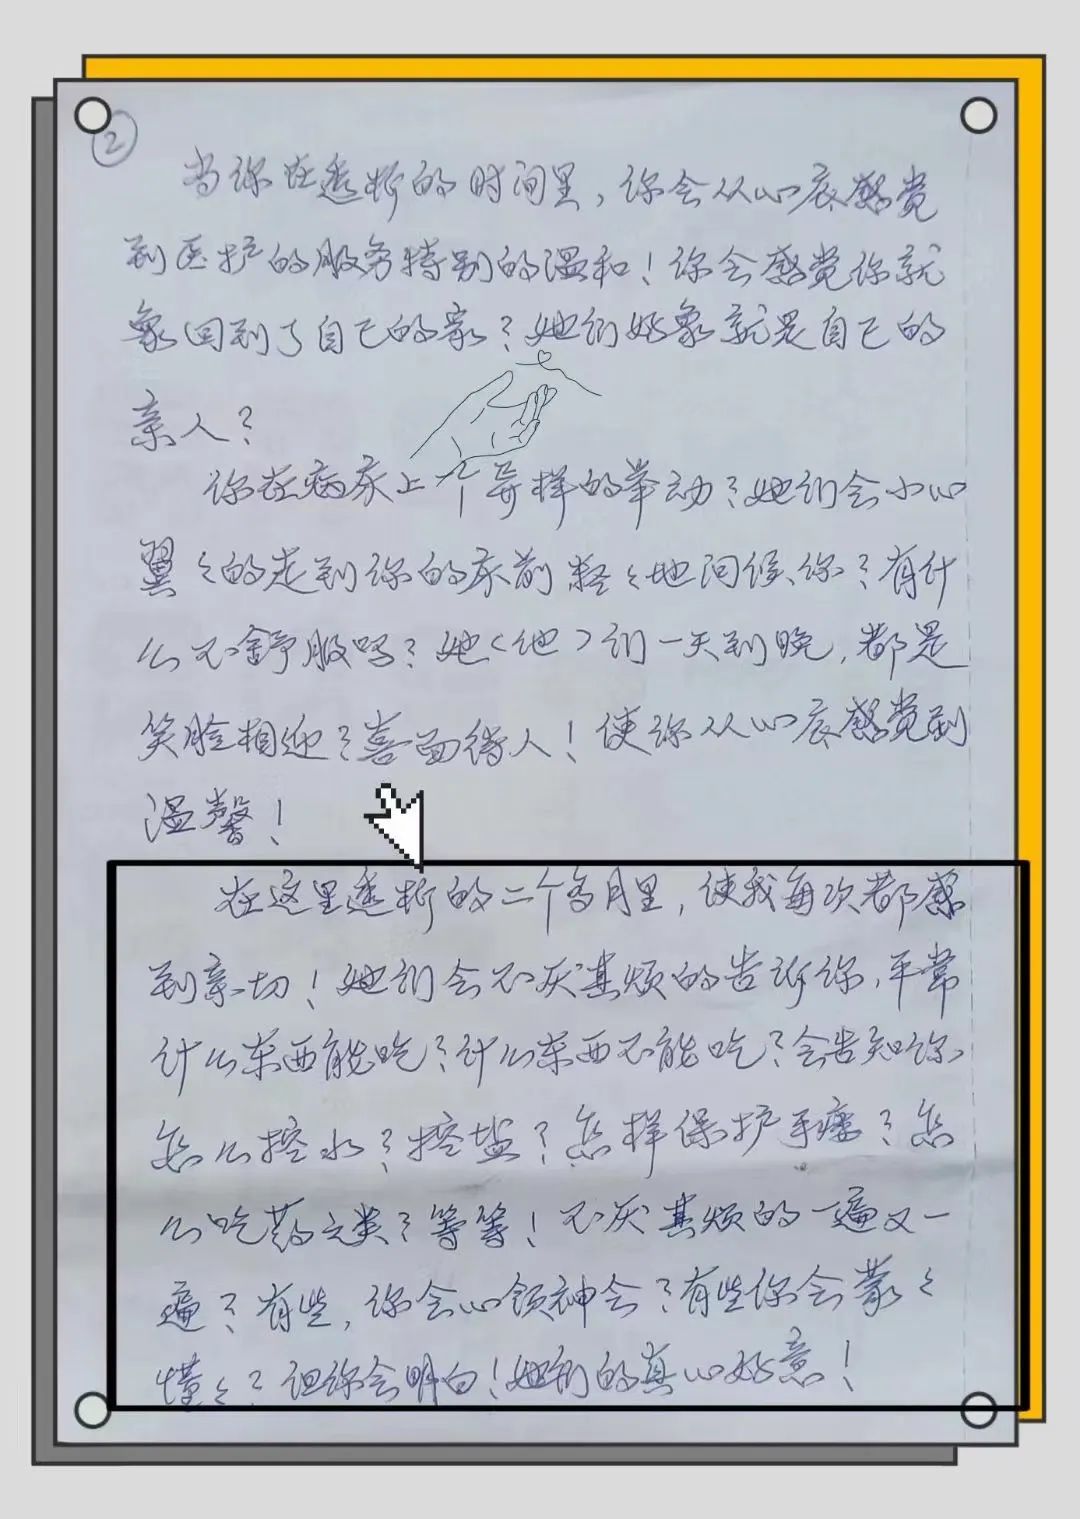 ②
当你在透析的时间里，你会从心底感觉
到医护的服务特别的温和！你会感觉你就
象回到了自己的家？她们好象就是自己的
亲人？
你在病床上一个异样的举动？她们会小心
翼々的走到你的床前轻々地问候、你？有什
么不舒服吗？她（他）们一天到晚，都是
笑脸相迎？喜面待人！使你从心底感觉到
温馨！
在这里透析的二个多月里，使我每次都感
到亲切！她们会不厌其烦的告诉你，平常
什么东西能吃？什么东西不能吃？会告知你
怎么控水？控盐？怎样保护手瘘？怎
么吃药之类？等等！不厌其烦的一遍又一
遍？有些，你会心领神会？有些你会蒙々
懂々？但你会明白！她们的真心好意！